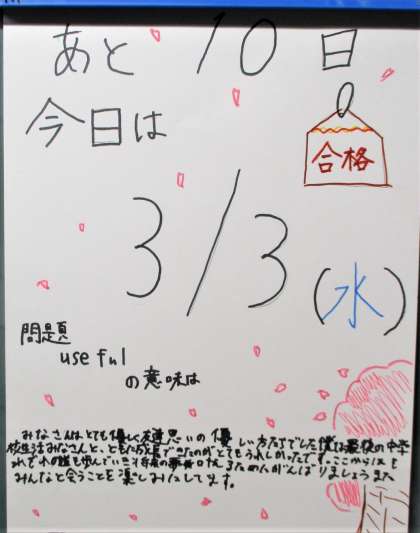 あと 10 日
今日は
合格
3/3 (水)
問題
useful
の意味は
みなさんはとても優しく友達思いの優しい方たちでした僕は最後の中学
校生活みなさんと、ともに
できたのがとてもうれしかったです。ここからは
それぞれの道を歩んでいき将来の夢 ためがんばりましょうまた
みんなと会うことを楽しみにしてます。